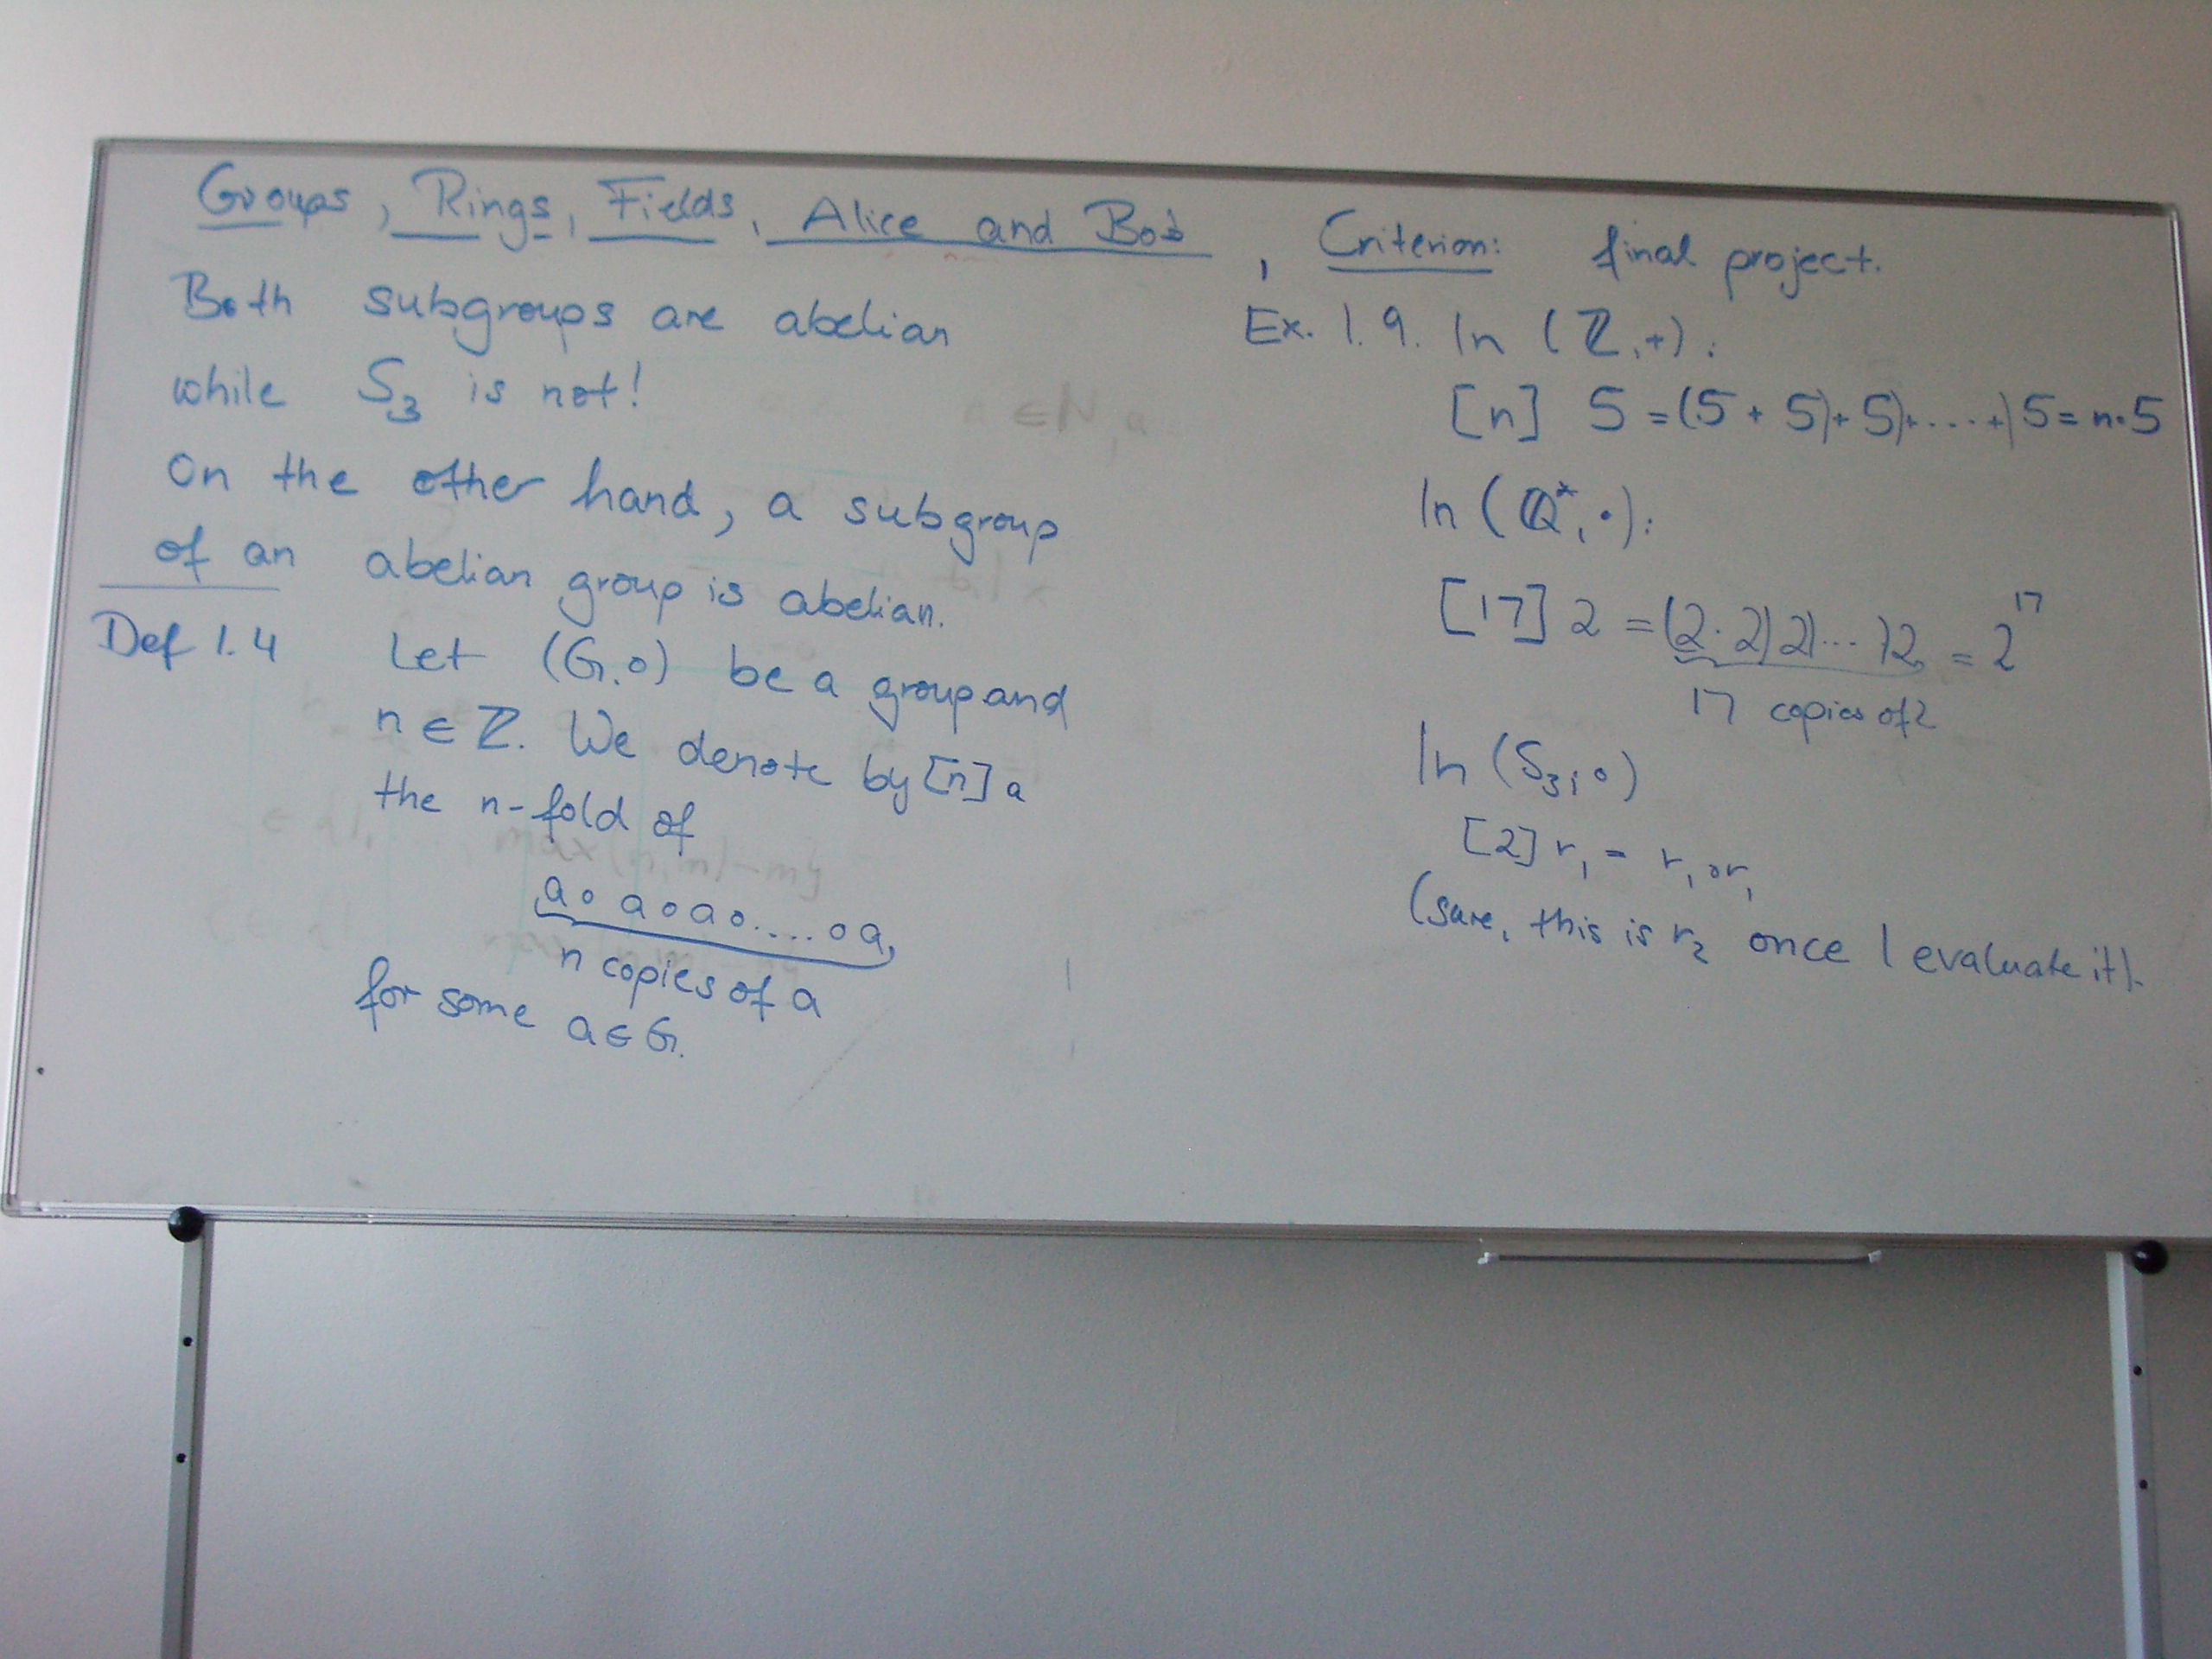 Groups, Rings, Fields, Alice and Bob, Criterion: final project.
Both subgroups are abelian
while S₃ is not!
On the other hand, a subgroup
of an abelian group is abelian.
Def 1.4 Let (G,∘) be a group and
n ∈ ℤ. We denote by [n]a
the n-fold of
a∘a∘a∘....∘a,
n copies of a
for some a∈G.
Ex. 1.9. In (ℤ,+):
[n] 5 = (5 + 5)+ 5)+....+)5 = n·5
In (ℚ*,·):
[17] 2 = (2·2)2)...)2 = 2¹⁷
17 copies of 2
In (S₃,∘)
[2] r₁ = r₁∘r₁
(sure, this is r₂ once I evaluate it).